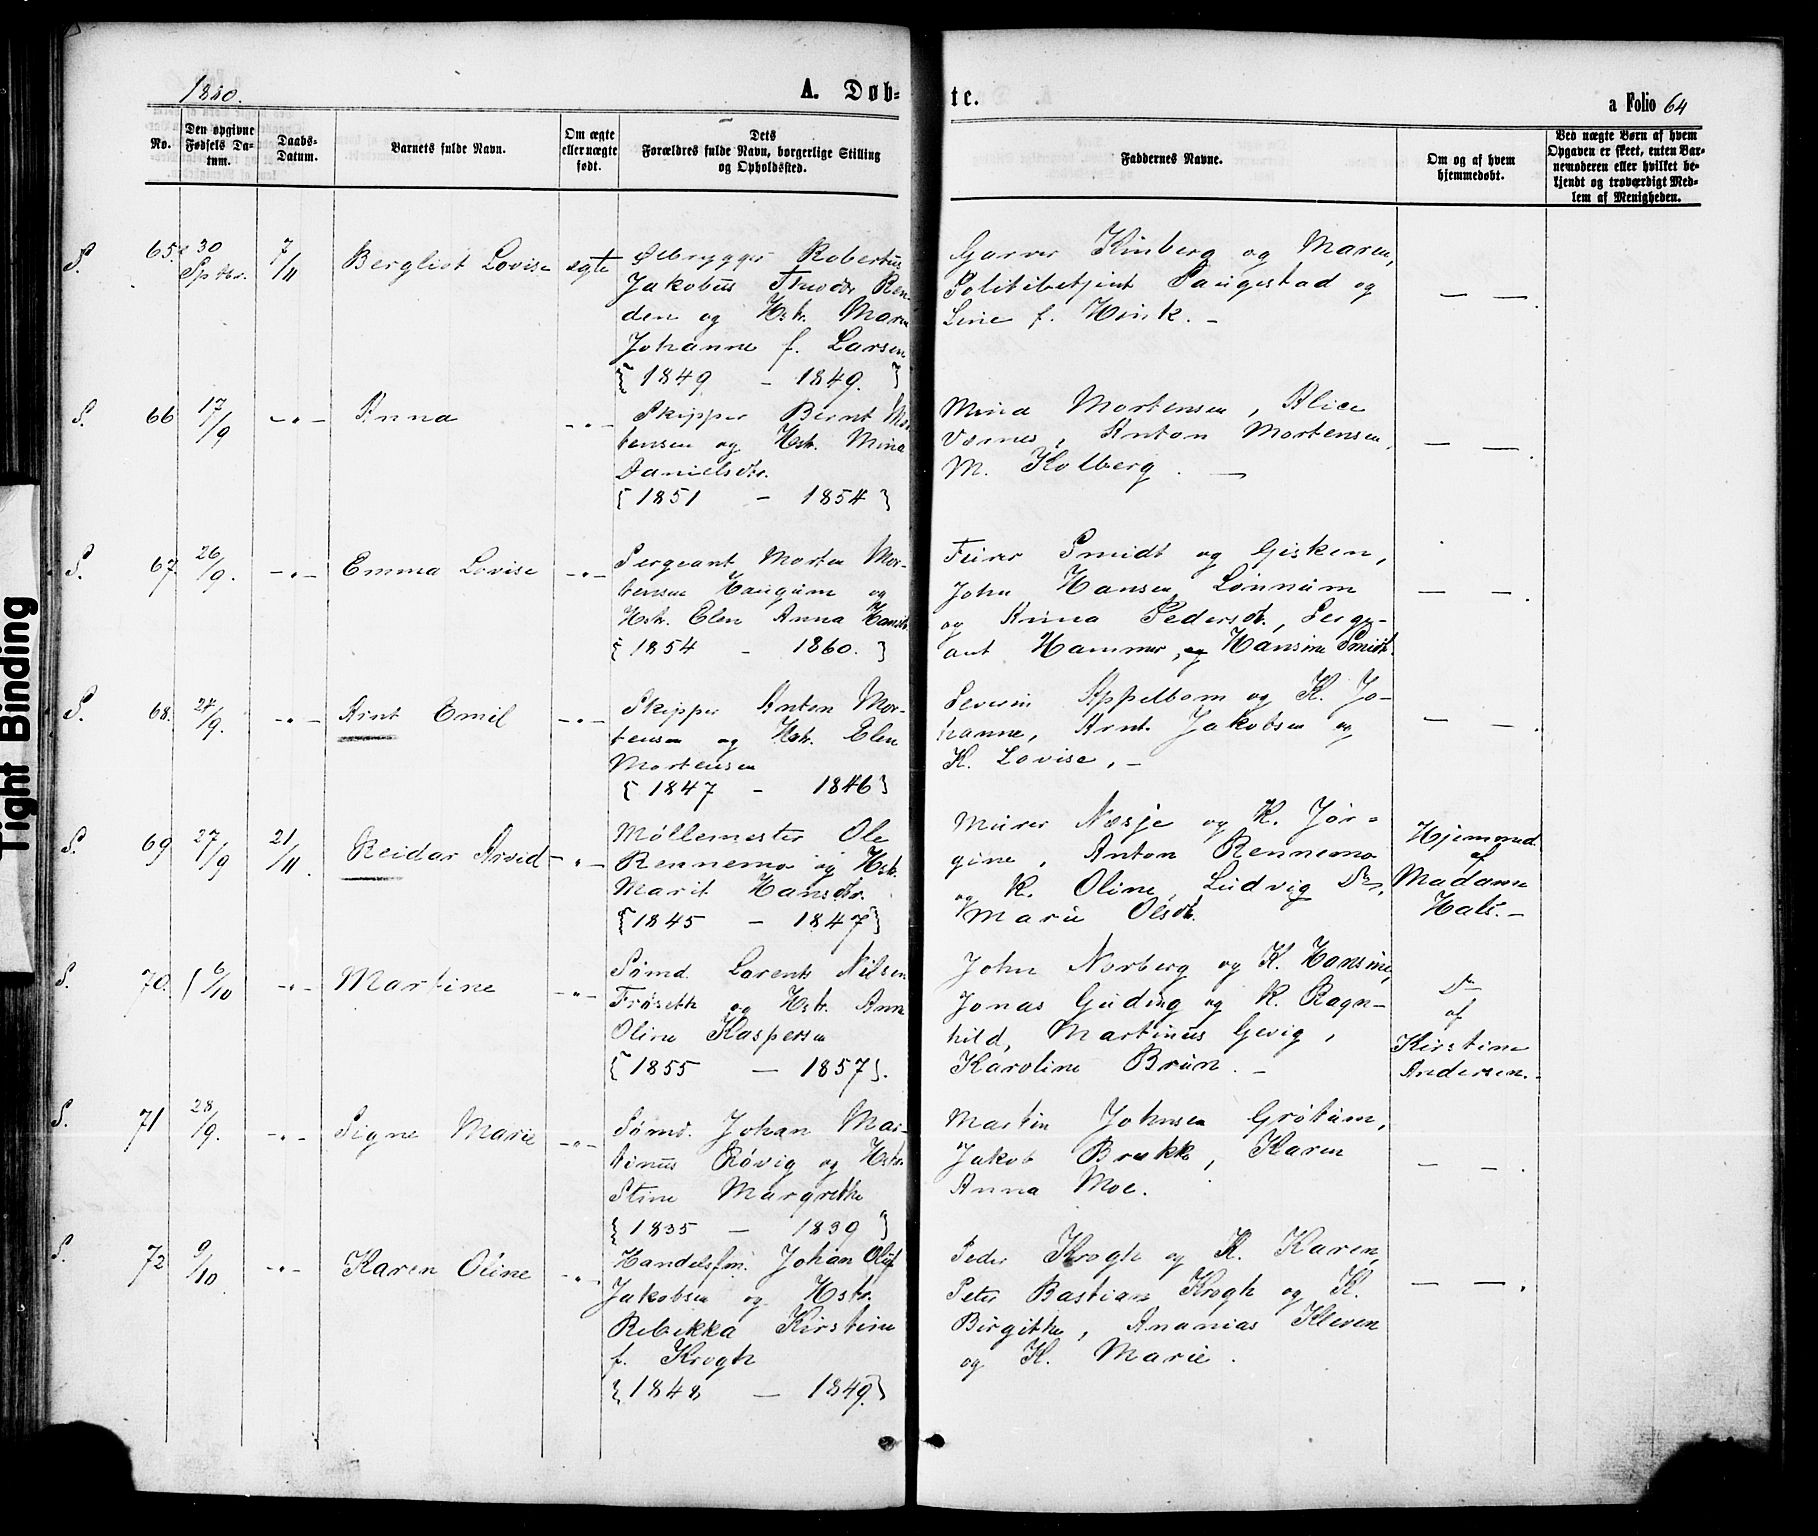 1880.
A. Døb-
te.
a Folio 64
No.
Den opgivne
Fødsels Da-
tum.
Daabs-
Datum.
Barnets fulde Navn.
Om ægte
eller uægte
født.
Dets
Forældres fulde Navn, borgerlige Stilling
og Opholdssted.
Faddernes Navne.
Om og af hvem
hjemmedøbt.
Ved uægte Børn af hvem
Opgaven er skeet, enten Bar-
nemoderen eller hvilket be-
kjendt og troværdigt Med-
lem af Menigheden.
S. 65 30 Sptbr. 7/11 Bergliot Lovise ægte
Ølbrygger Robertus
Jakobus Theodor Ren-
den og Hstr. Maren
Johanne f. Larsen
{1849 - 1849.}
Garver Kinberg og Maren,
Politibetjent Saugestad og
Line f. Hink. -
— —.
S. 66 17/9 -"- Anna -"-
Skipper Bernt Mor-
tensen og Hstr. Mina
Danielsdtr.
{1851 - 1854}
Mina Mortensen, Alice
Værnes, Anton Mortensen,
M. Kolberg. —
— —.
S. 67. 26/9. -"- Emma Lovise -"-
Sergeant Morten Mor-
tensen Haugum og
Hstr. Elen Anna Hansdtr.
{1854 - 1860.}
Feirer Smidt og Gisken,
John Hansen Lønnum
og Anna Pedersdt., Serge-
ant Hammer, og Hansine Smidt.
— —.
S. 68. 27/9. -"- Arnt Emil -"-
Skipper Anton Mor-
tensen og Hstr. Elen
Mortensen
{1847 - 1846}
Severin Appelbom og K. Jo-
hanne, Arnt Jakobsen og
K. Lovise, -
— —.
S. 69 27/9 21/11. Reidar Arvid -"-
Møllemester Ole
Rennemo og Hstr.
Marit Hansdtr.
{1845 - 1847}
Murer Næsje og K. Jør-
gine, Anton Rennemo
og K. Oline, Ludvig Do,
Marie Olsdt.
Hjemmed.
af
Madame
Hals. -
S. 70. 6/10 -"- Martine -"-
Sømd. Lorents Nilsen
Frøseth og Hstr. Ann
Oline Kaspersen
{1855 — 1857}.
John Norberg og K. Hansine,
Jonas Guding og K. Ragn-
hild, Martinus Gevig,
Karoline Brun. -
Do
af
Kirstine
Andersen.
S. 71 28/9. -"- Signe Marie -"-
Sømd. Johan Mar-
tinus Røvig og Hstr.
Stine Margrethe
{1835 — 1839}
Martin Johnsen Grøtum,
Jakob Brekke, Karen
Anna Moe.
— —.
S. 72 9/10 -"- Karen Oline -"-
Handelsfm. Johan Oluf
Jakobsen og Hstr.
Rebekka Kirstine
f. Krogh
{1848 — 1849}
Peder Krogh og K. Karen,
Peter Bastian Krogh og K.
Birgithe, Ananias Kleven
og K. Marie.
— —.
Tight Binding